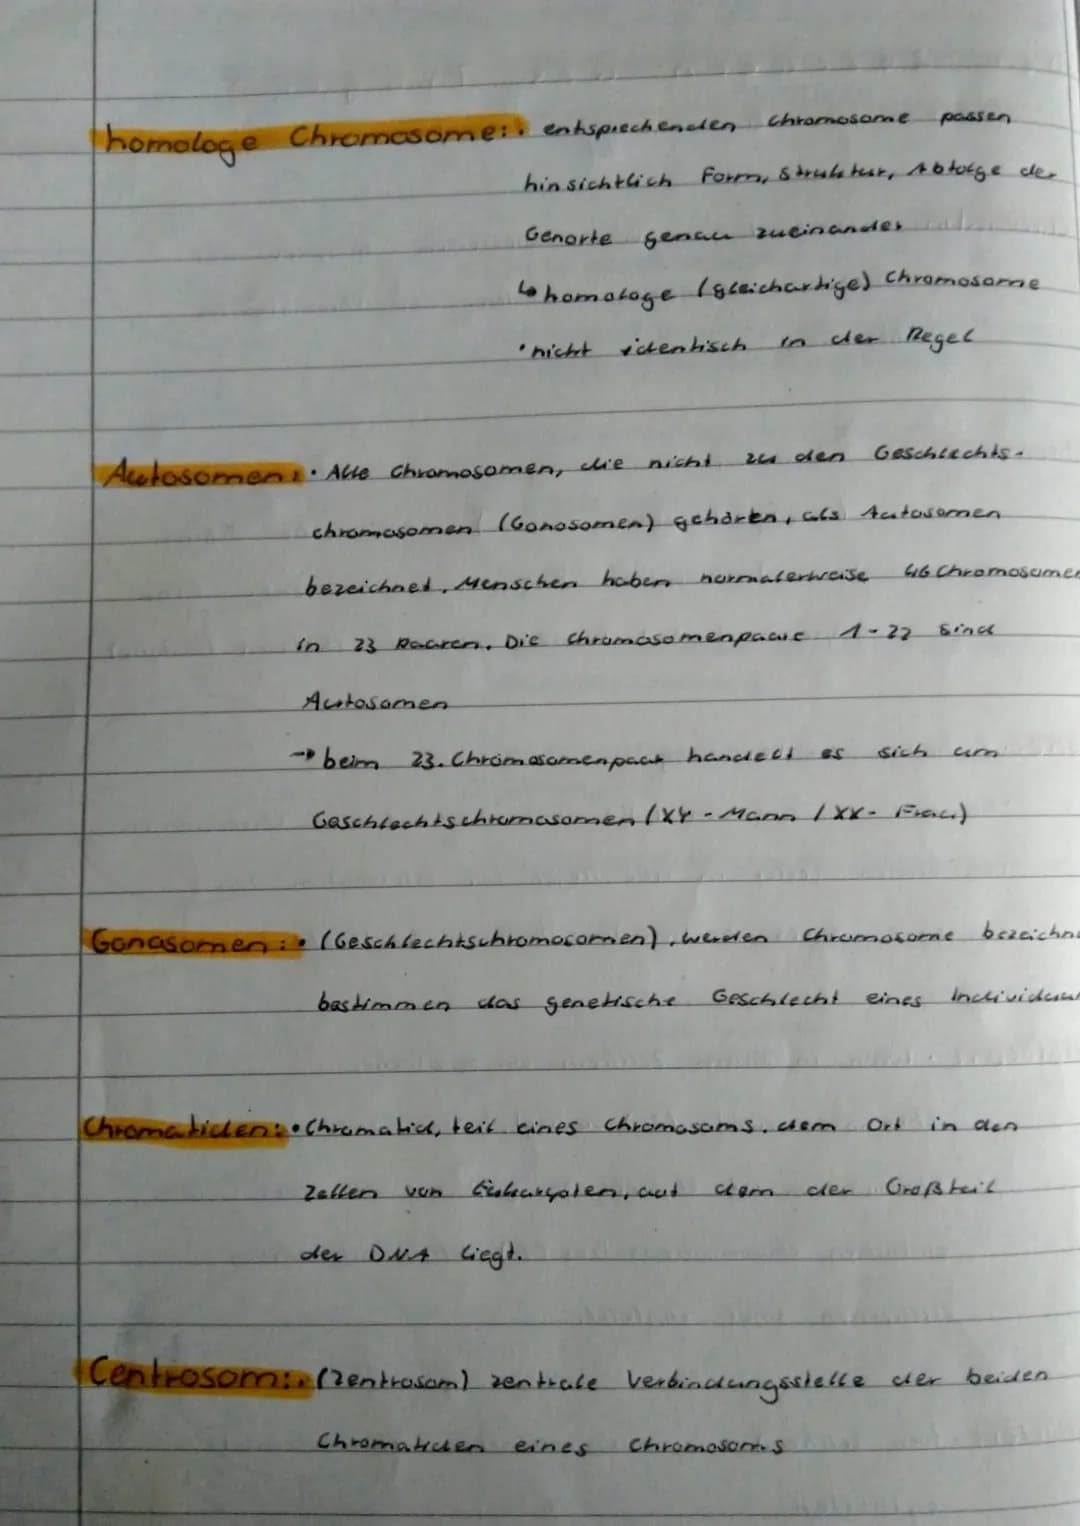 homologe Chromosome: • entsprechenden Chromosome passen
hinsichtlich Form, Struktur, Abfolge der
Genorte genau zueinander
↳ homologe (gleichartige) Chromosome
• nicht identisch in der Regel
Autosomen: • Alle Chromosomen, die nicht zu den Geschlechts-
chromosomen (Gonosomen) gehören, als Autosomen
bezeichnet. Menschen haben normalerweise 46 Chromosomen
in 23 Paaren. Die Chromosomenpaare 1-22 sind
Autosomen
→ beim 23. Chromosomenpaar handelt es sich um
Geschlechtschromosomen (XY - Mann / XX - Frau)
Gonosomen: • (Geschlechtschromosomen), werden Chromosome bezeichne
bestimmen das genetische Geschlecht eines Individuu
Chromatiden: • Chromatid, teil eines Chromosoms. dem Ort in den
Zellen von Eukaryoten, auf dem der Großteil
der DNA liegt.
Centrosom: • (Zentrosom) zentrale Verbindungsstelle der beiden
Chromatiden eines Chromosoms